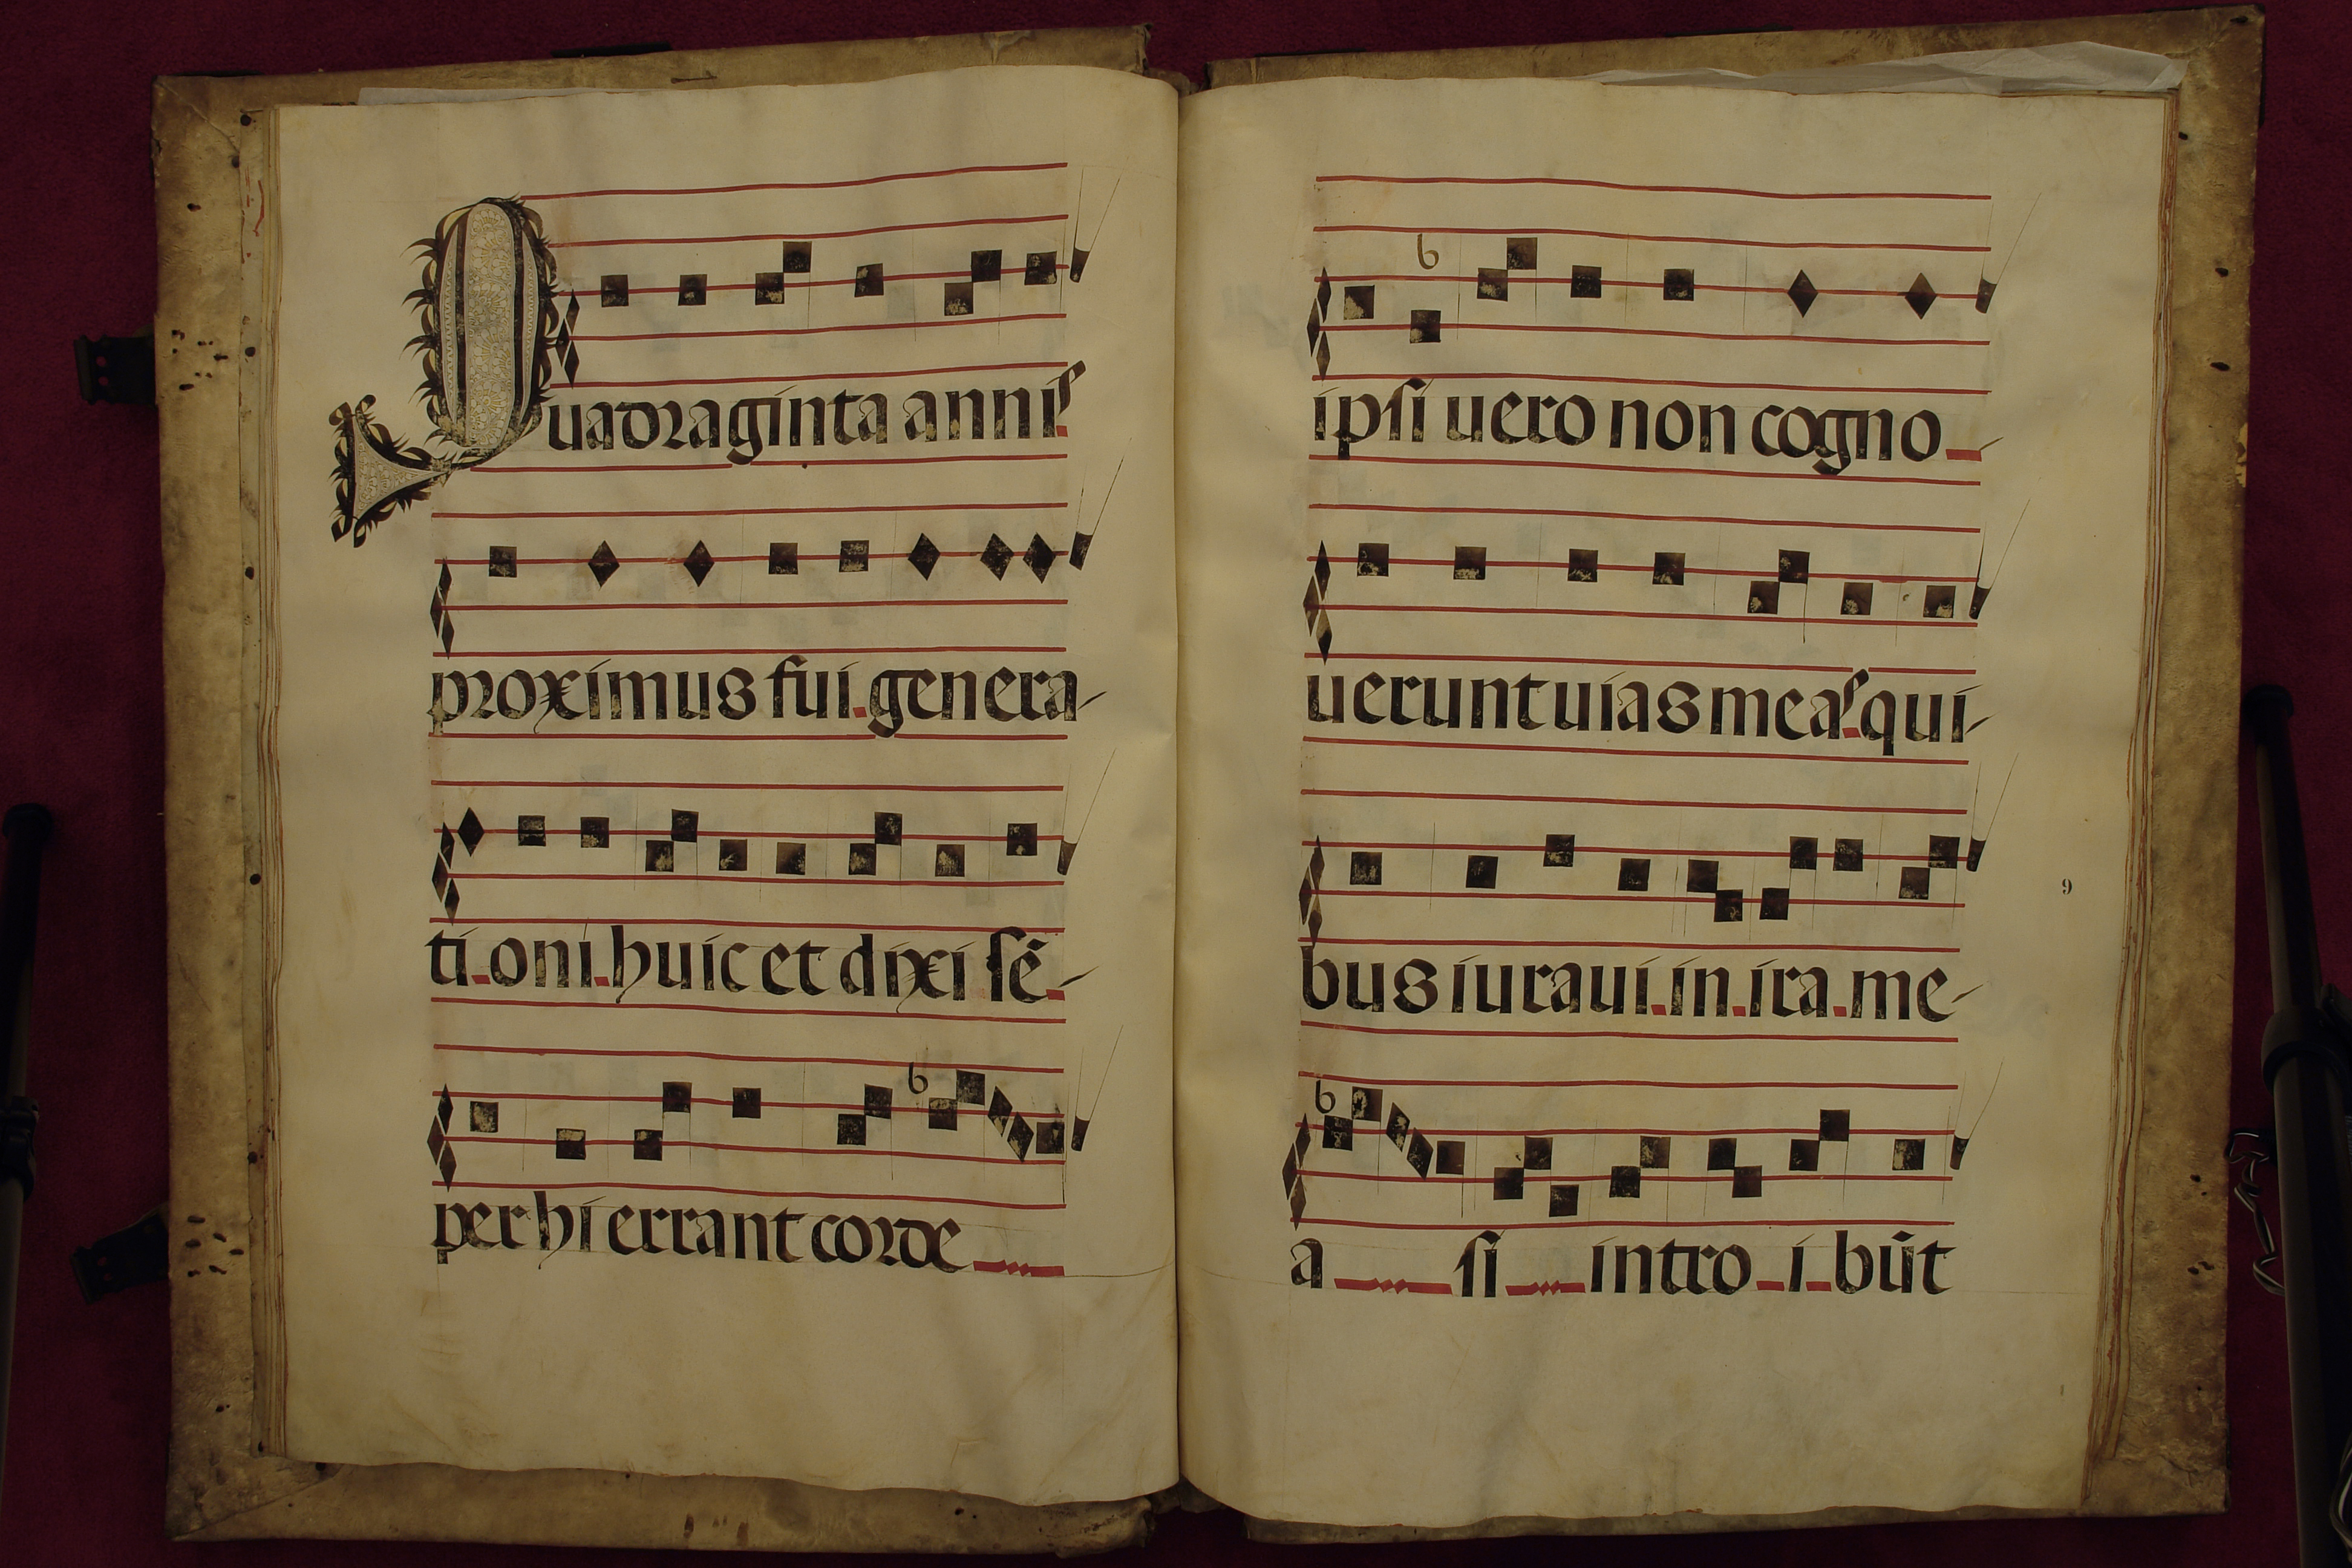 Quadraginta annis
proximus fui genera-
tioni huic et dixi sē-
per hi errant corde
ipsi uero non cogno
uerunt uias meas qui-
bus iuraui in ira me-
a si intro i būt
9